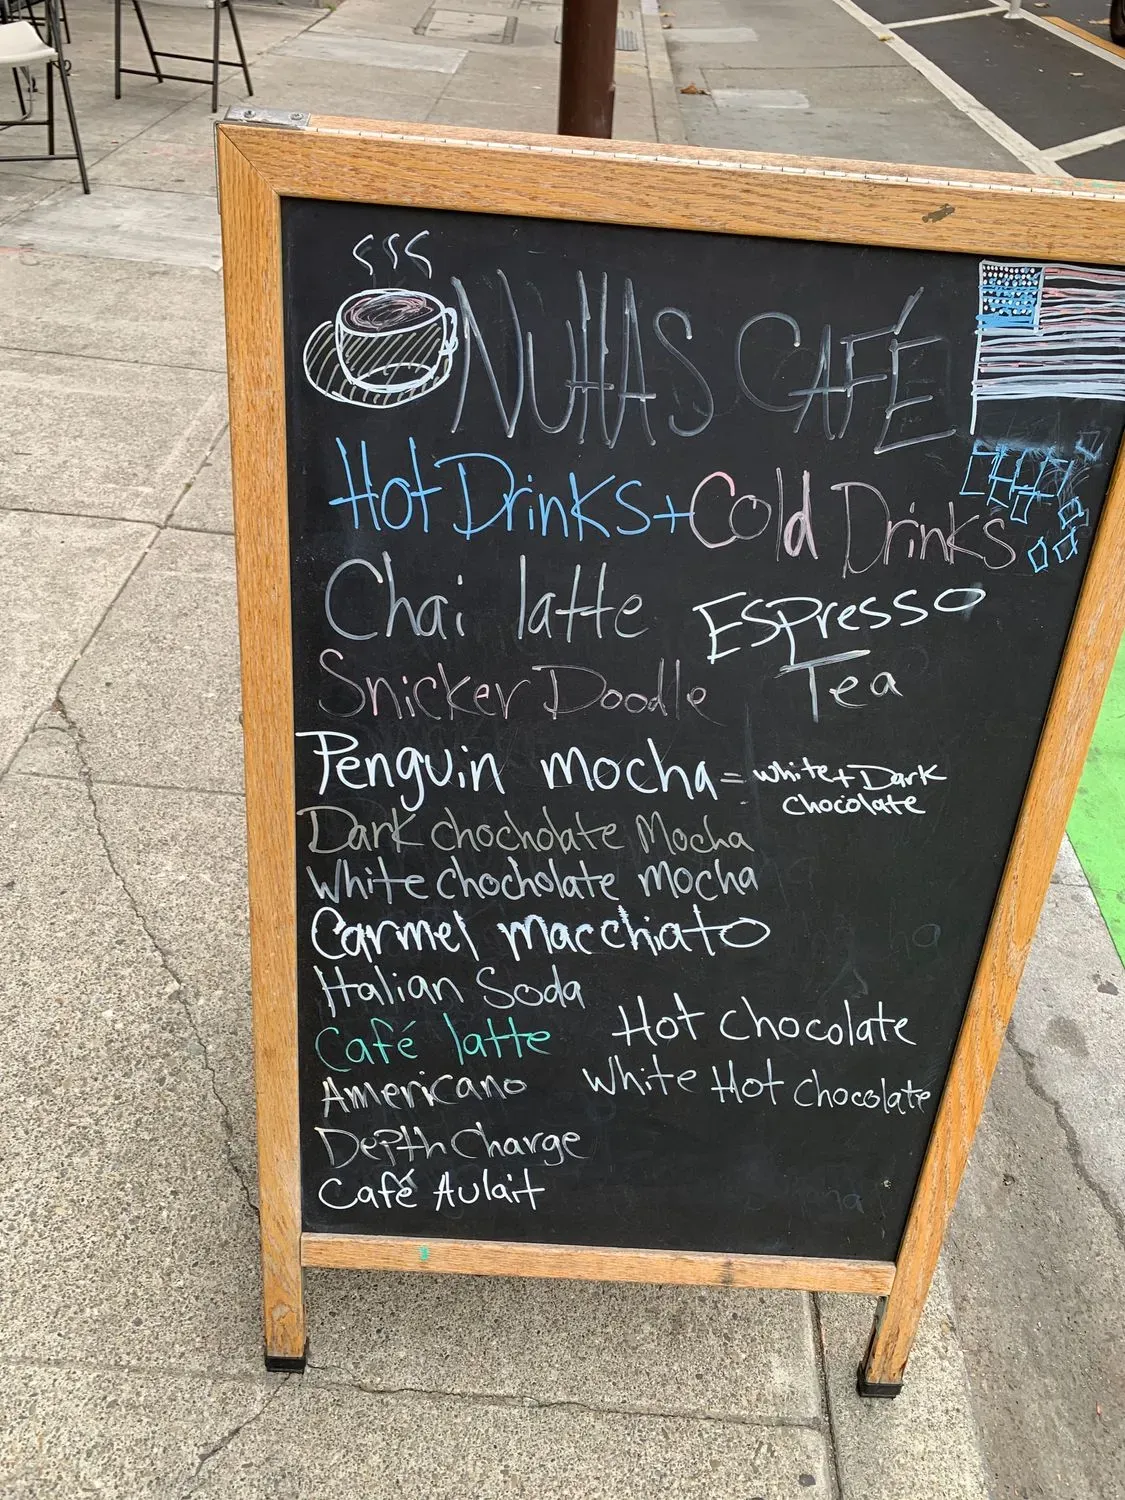 NUHAS CAFÉ
Hot Drinks + Cold Drinks
Chai latte
Espresso
Snicker Doodle
Tea
Penguin mocha = white + Dark
chocolate
Dark chocholate Mocha
White chocholate mocha
Carmel macchiato
Italian Soda
Café latte
Hot chocolate
Americano
White Hot chocolate
Depth Charge
Café Aulait